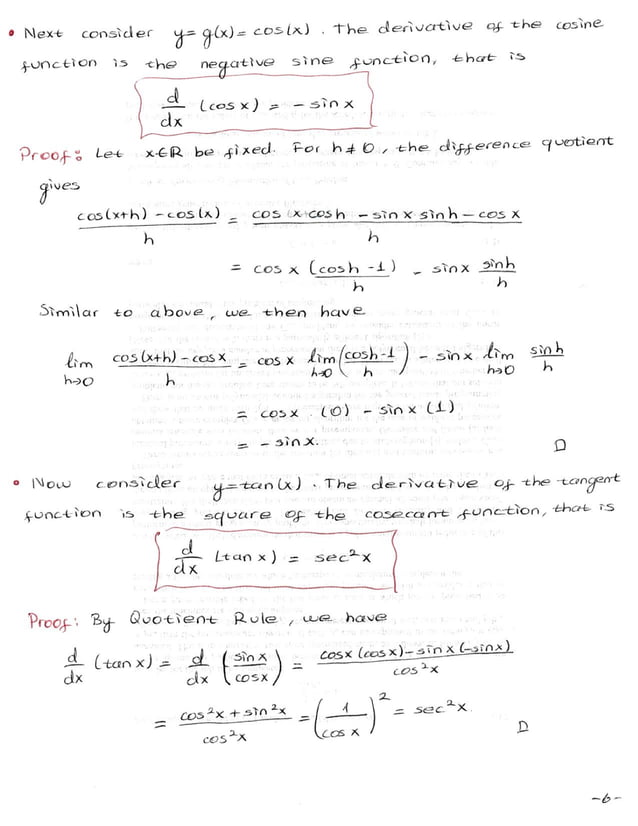 • Next consider y=g(x)=cos(x). The derivative of the cosine
function is the negative sine function, that is
d/dx (cos x) = - sin x
Proof: Let x∈R be fixed. For h≠0, the difference quotient
gives
(cos(x+h) - cos(x))/h = (cos x cos h - sin x sin h - cos x)/h
= cos x (cos h - 1)/h - sin x (sin h)/h
Similar to above, we then have
lim h→0 (cos(x+h) - cos x)/h = cos x lim h→0 ((cos h - 1)/h) - sin x lim h→0 (sin h)/h
= cos x . (0) - sin x (1)
= - sin x. □
• Now consider y=tan(x). The derivative of the tangent
function is the square of the cosecant function, that is
d/dx (tan x) = sec²x
Proof: By Quotient Rule, we have
d/dx (tan x) = d/dx (sin x/cos x) = (cos x (cos x) - sin x (-sin x))/cos²x
= (cos²x + sin²x)/cos²x = (1/cos x)² = sec²x □
-6-